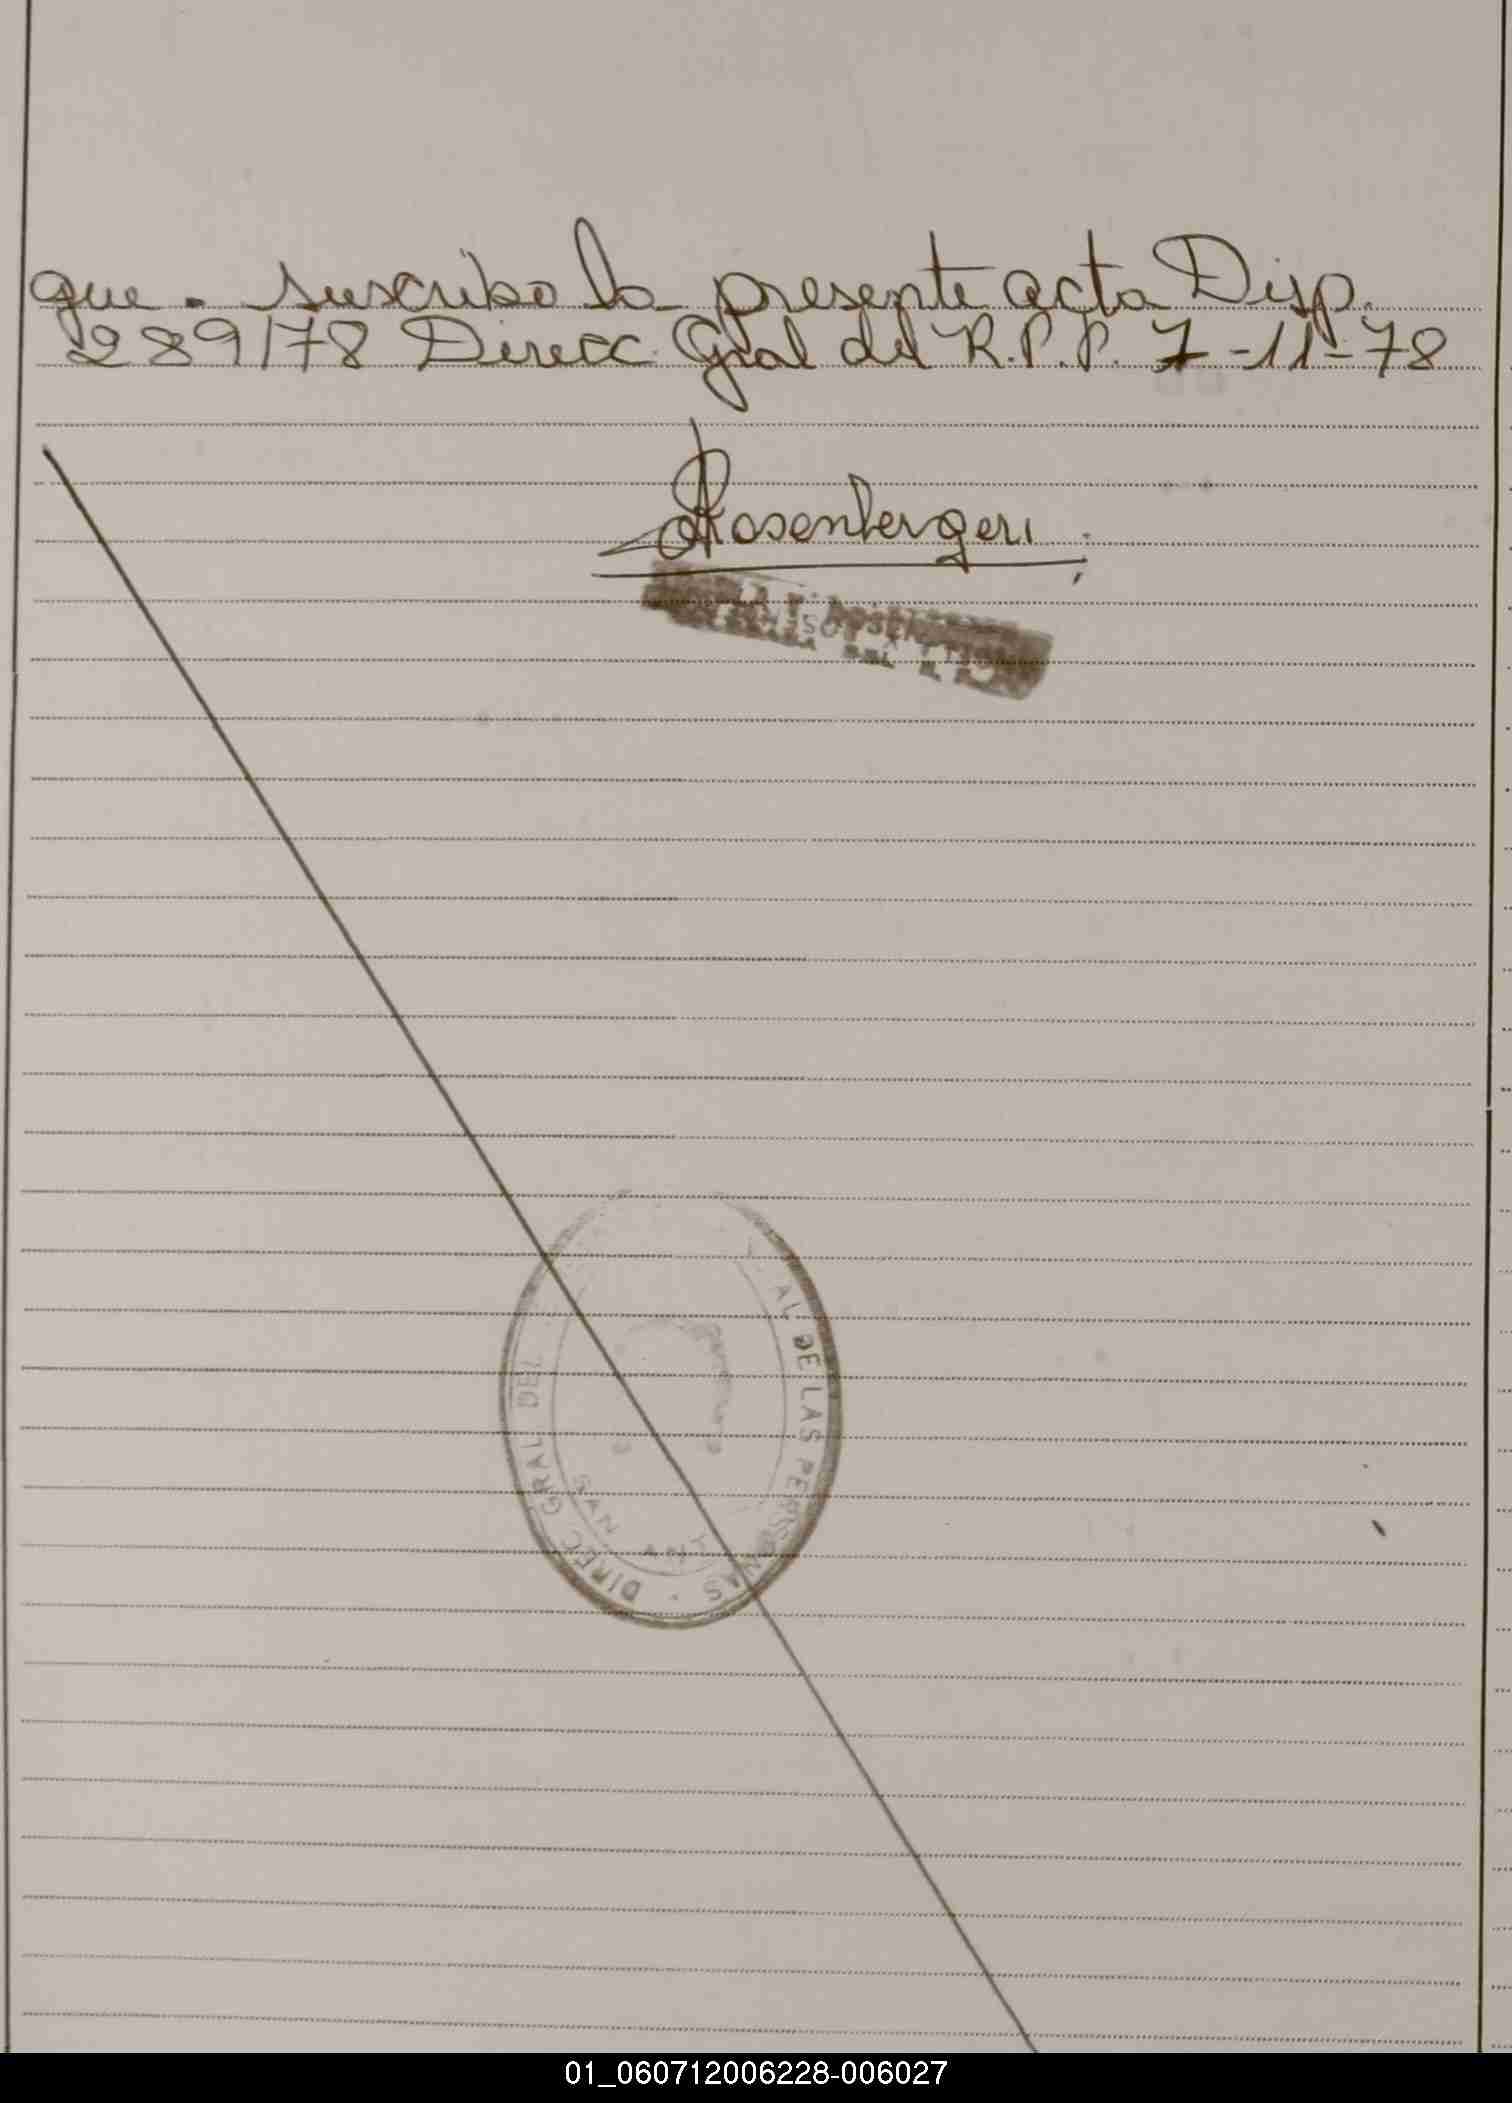 que. suscribo la presente acta Disp.
289/78 Direcc. Gral del R.P.P. 7-11-78
Rosenberger
AL DE LAS PERSONAS
DIREC GRAL DEL
SAN
01_060712006228-006027